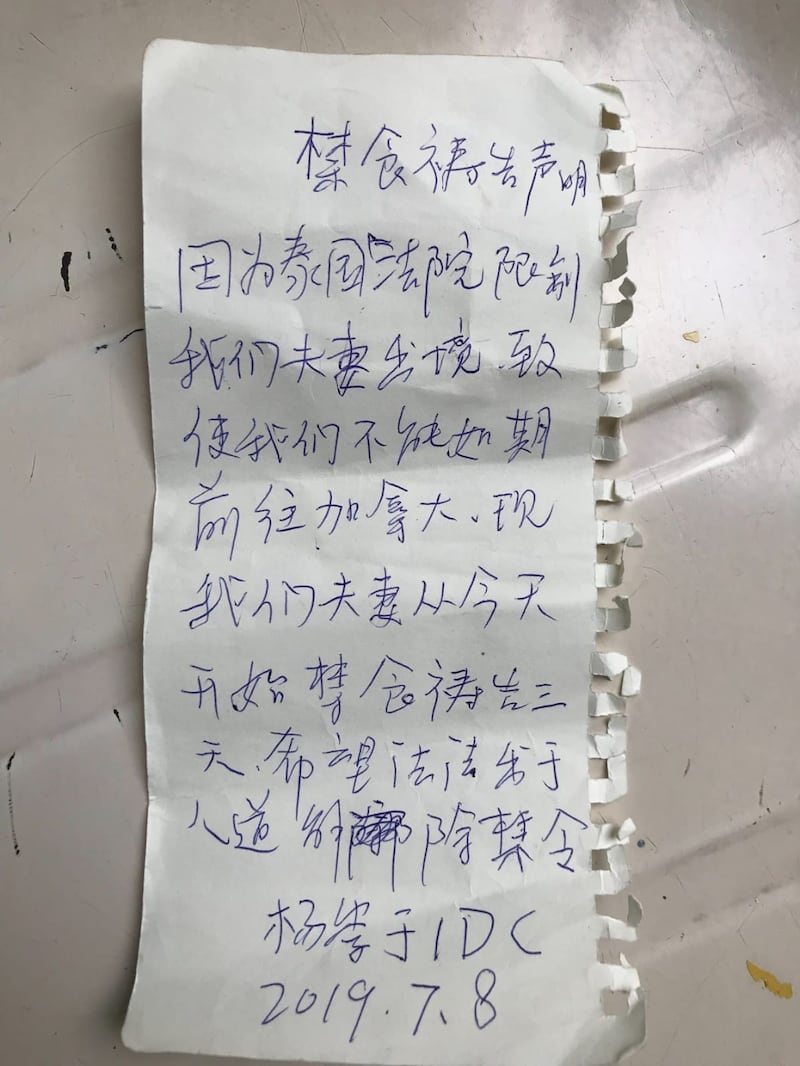 禁食祷告声明
因为泰国法院限制
我们夫妻出境、致
使我们不能如期
前往加拿大、现
我们夫妻从今天
开始禁食祷告三
天、希望法法出于
人道解除禁令
杨崇于IDC
2019.7.8